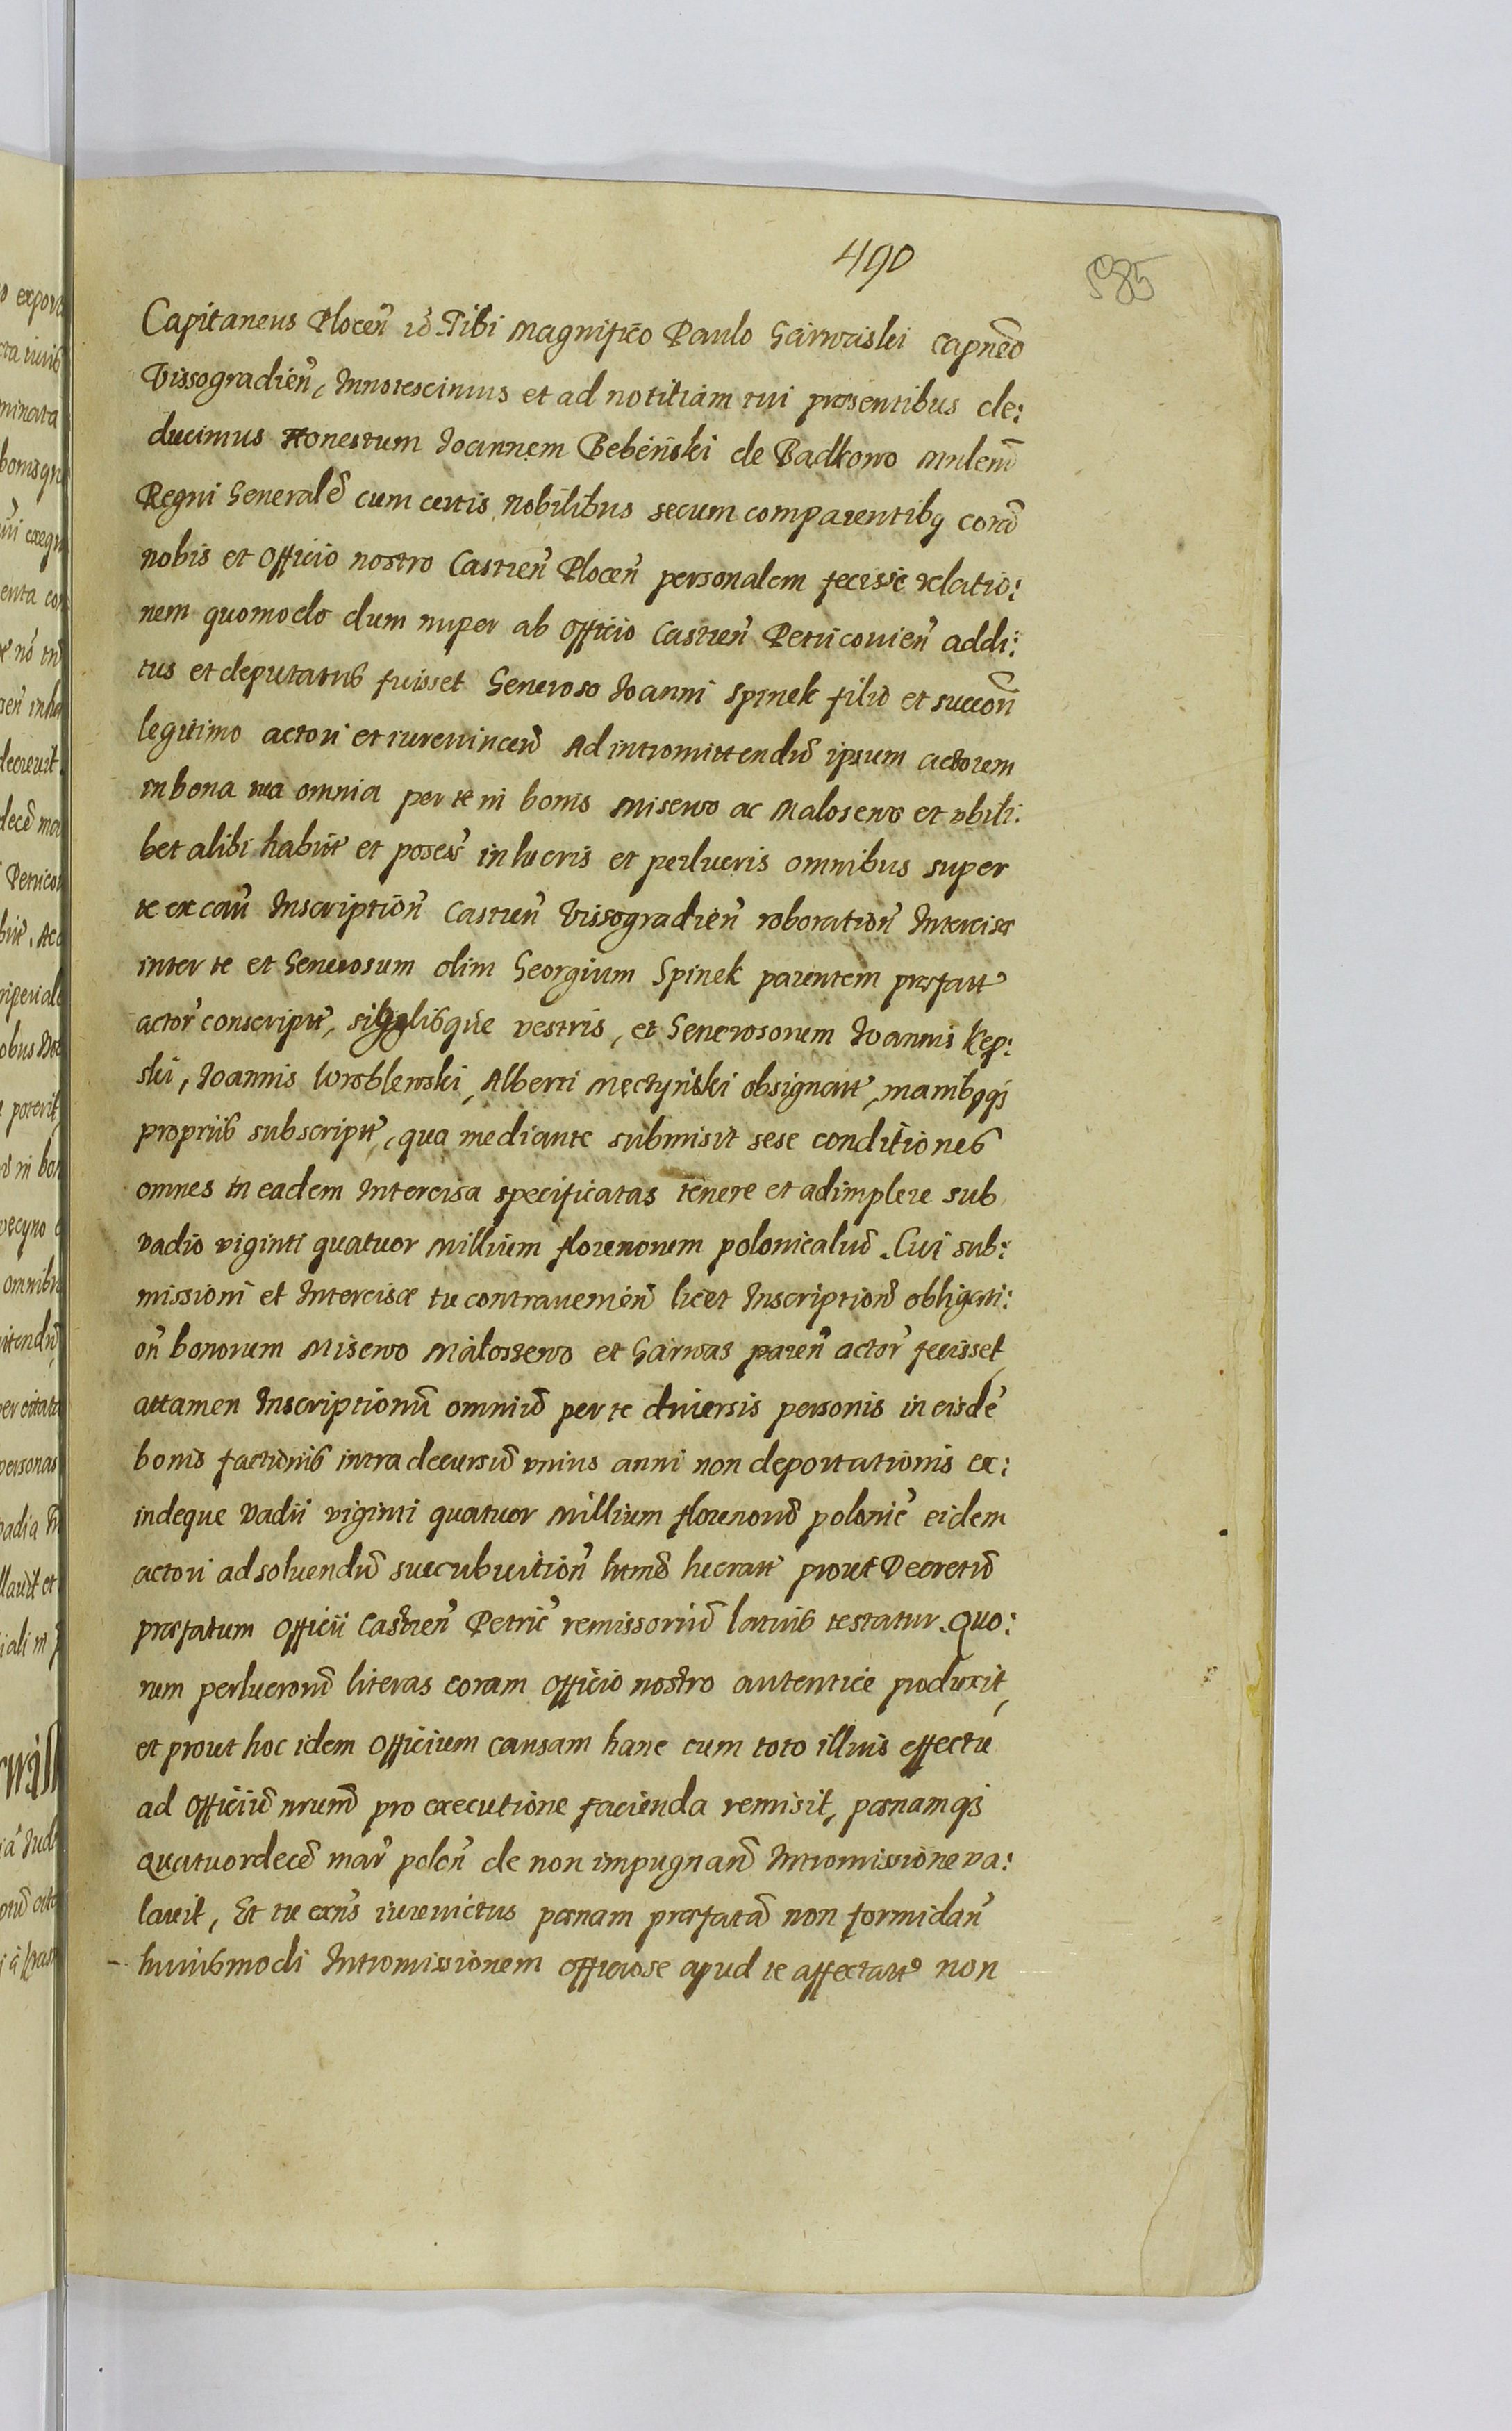 490
585
Capitaneus Plocen̄ Tibi Magnifico Paulo Garwaski Capneo
Vissogradien̄, Innotescimus et ad notitiam tui præsentibus de:
ducimus Honestum Joannem Bebeński de Badkowo Mnlem
Regni Generalē cum certis Nobilibus secum comparentibq corā
nobis et Officio nostro Castren̄ Plocen̄ personalem fecisse relatio:
nem quomodo dum nuper ab Officio Castren̄ Petricouien̄ addi:
tus et deputatus fuisset Generoso Joanni Spinek filio et succon̄
legitimo actori et iureuincen̄ Ad intromittendū ipsum actorem
in bona tua omnia per te in bonis Misewo ac Malosewo et vbili:
bet alibi habit et posess in lucris et perlucris omnibus super
te ex cau Inscription̄ Castren̄ Vissogradien̄ roboration̄ Intercisæ
inter te et Generosum olim Georgium Spinek parentem præfatt
actor conscript, sigglisque vestris, et Generosorum Joannis Kep:
ski, Joannis Wroblewski, Alberti Męczyński obsignatt, manibqqs
propriis subscript, qua mediante submisit sese conditiones
omnes in eadem Intercisa specificatas tenere et adimplere sub
vadio viginti quatuor Millium florenorum polonicaliū. Cui sub:
missioni et Intercisæ tu contrauenien̄ licet Inscriptionē obligati:
on̄ bonorum Misewo Malossewo et Garwas paren̄ actor fecisset,
attamen Inscriptionū omniū per te diuersis personis in eisdē
bonis factarūs intra decursū vnius anni non deportationis ex:
indeque Vadii viginti quatuor Millium florenorū polonic eidem
actori ad soluendū succubuition̄ lucratt prout Decretū
præfatum Officii Castren̄ Petric remissoriū latius testatur. Quo:
rum perlucrorū literas coram Officio nostro autentice produxit,
et prout hoc idem Officium causam hanc cum toto illius effectu
ad Officiū nrum pro executione facienda remisit, pænamqs
quatuordecē mar polon̄ de non impugnan̄ Intromissione va:
lauit, Et tu exns iureuictus pænam præfatā non formidan̄
huiusmodi Intromissionem officiose apud te affectatt non